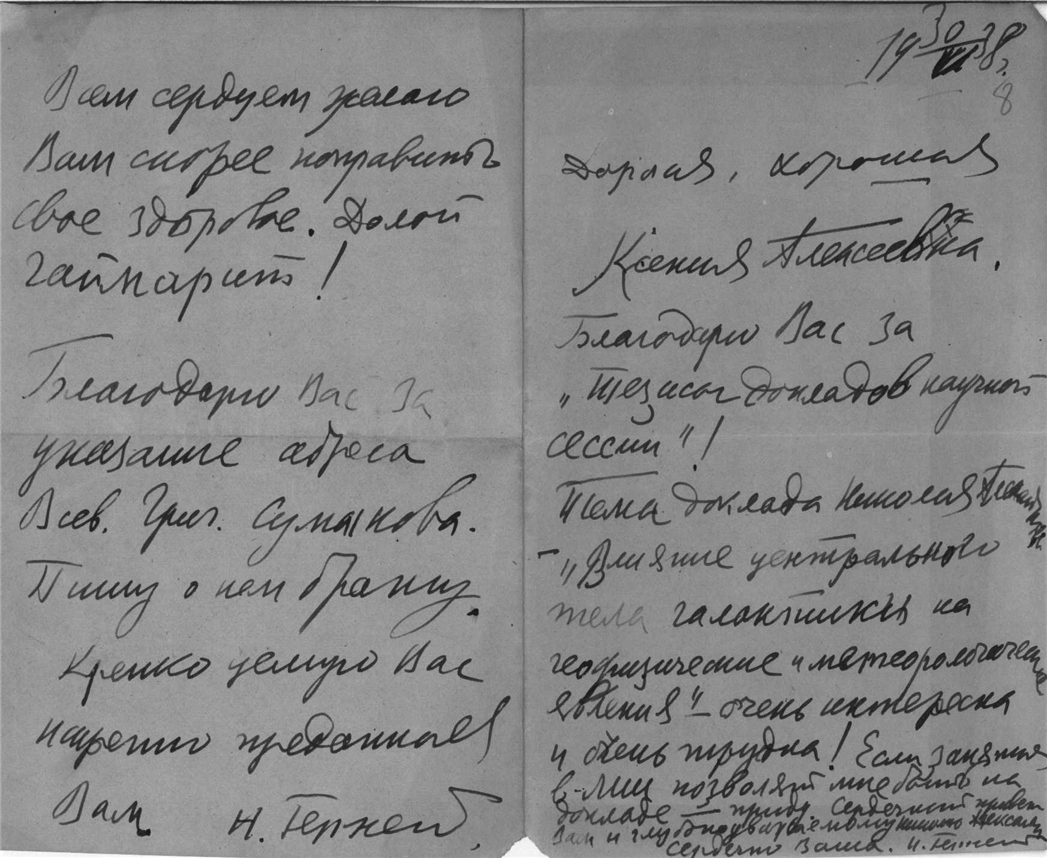 19 30/VI 38 г.
8
Дорогая, хорошая
Ксения Алексеевна.
Благодарю Вас за
„Тезисы докладов научной
сессии"!
Тема доклада Николая
– „Влияние центрального
тела галактики на
геофизические и метеорологические
явления" – очень интересна
и очень трудна! Если занятия
в позволят мне быть на
докладе — приду. Сердечный привет
Вам и глубокоуважаемому
Сердечно Ваша. Н. Гернет
Всем сердцем желаю
Вам скорее поправить
свое здоровье. Долой
гайморит!
Благодарю Вас за
указание адреса
Всев. Григ.
Пишу о нем
Крепко целую Вас
искренно преданная
Вам Н. Гернет.